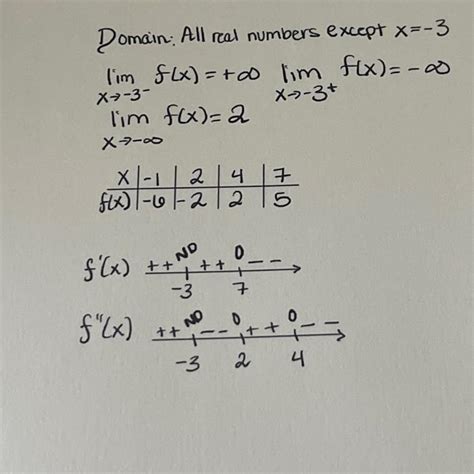 Domain: All real numbers except x=-3
lim f(x)=+∞ lim f(x)=-∞
x→-3⁻ x→-3⁺
lim f(x)=2
x→-∞
x | -1 | 2 | 4 | 7
f(x) | -6 | -2 | 2 | 5
f'(x) ++ ND ++ 0 --
-3 7
f"(x) ++ ND -- 0 ++ 0 --
-3 2 4